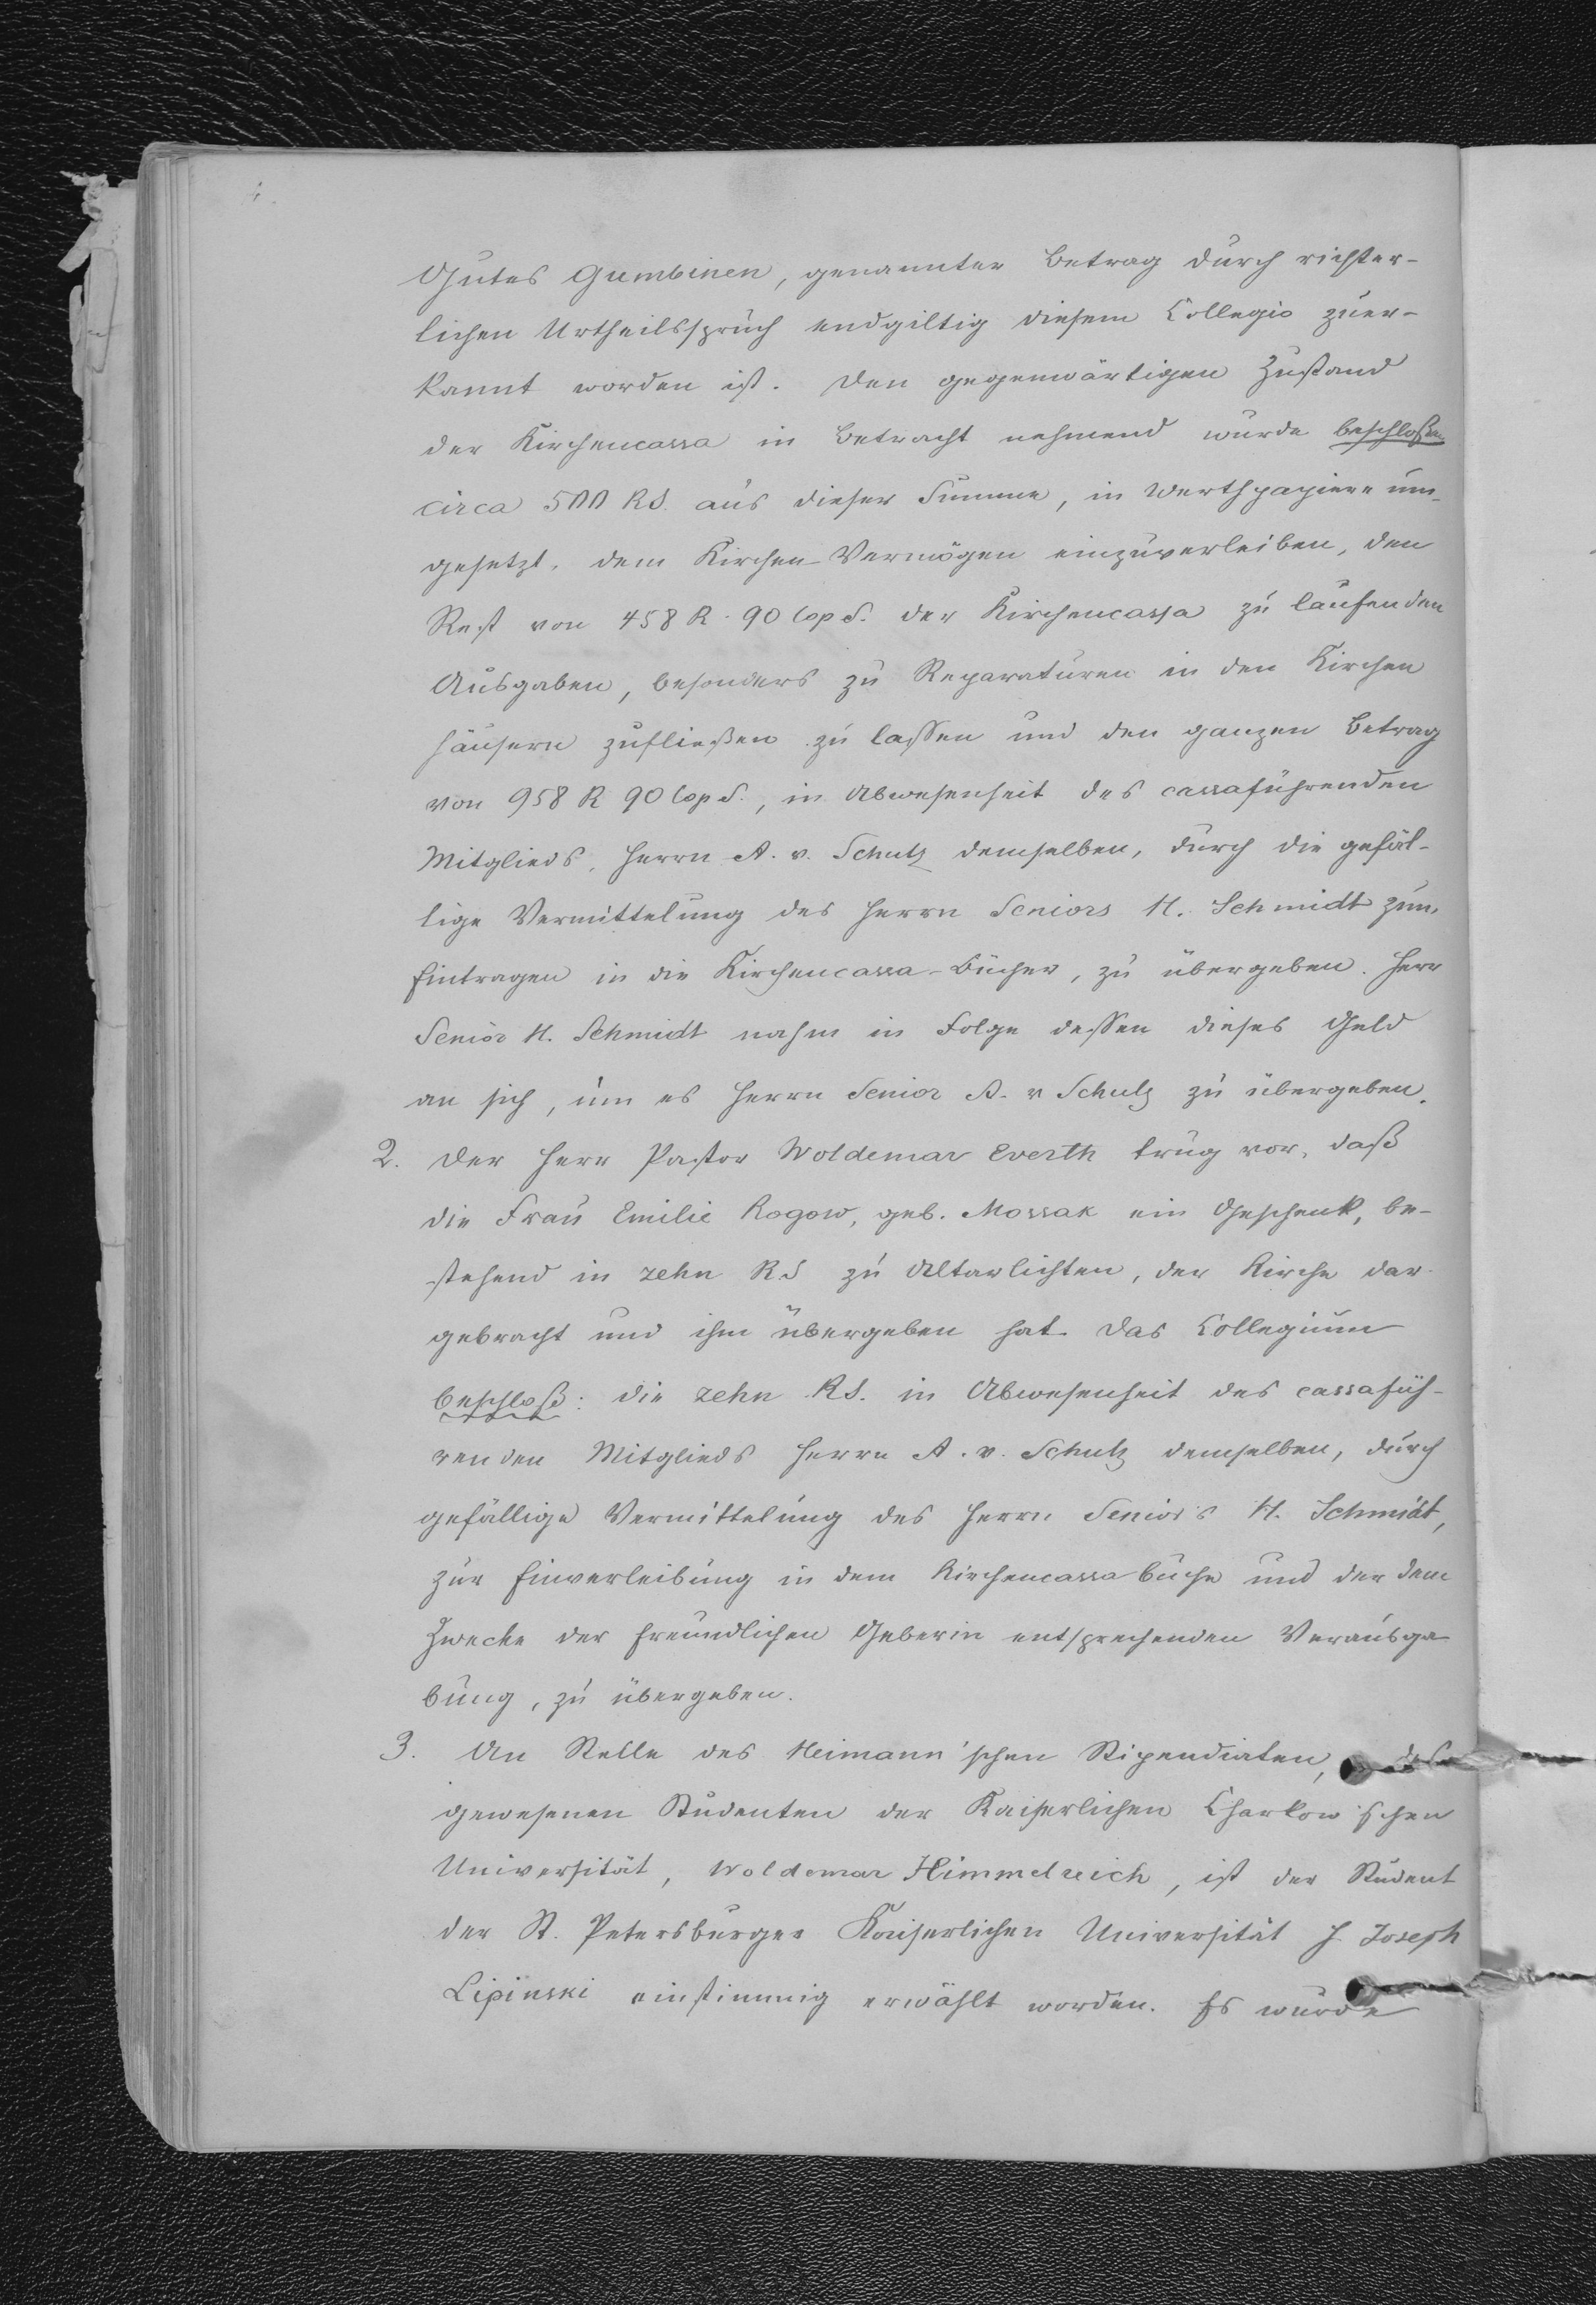 Gutes Gumbinen, genannter Betrag durch richter-
lichen Urtheilsspruch endgiltig diesem Collegio zuer-
kannt worden ist. Den gegenwärtigen Zustand
der Kirchencassa in Betracht nehmend wurde beschloßen
circa 500 RS. aus dieser Summe, in Werthpapiere um-
gesetzt, dem Kirchen-Vermögen einzuverleiben, den
Rest von 458 R. 90 Cop S. der Kirchencassa zu laufenden
Ausgaben, besonders zu Reparaturen in den Kirchen
häusern zufließen zu lassen und den ganzen Betrag
von 958 R 90 Cop S., in Abwesenheit des cassaführenden
Mitglieds, Herrn A. v. Schulz demselben, durch die gefäl-
lige Vermittelung des Herrn Seniors H. Schmidt zum
Eintragen in die Kirchencassa-Bücher, zu übergeben. Herr
Senior H. Schmidt nahm in Folge dessen dieses Geld
an sich, um es Herrn Senior A. v Schulz zu übergeben.
2. Der Herr Pastor Woldemar Everth trug vor, daß
die Frau Emilie Rogow, geb. Mossak ein Geschenk, be-
stehend in zehn RS zu Altarlichten, der Kirche dar-
gebracht und ihm übergeben hat. Das Collegium
beschloß: die zehn RS. in Abwesenheit des cassafüh-
renden Mitglieds Herrn A. v. Schulz demselben, durch
gefällige Vermittelung des Herrn Seniors H. Schmidt,
zur Einverleibung in dem Kirchencassabuche und der dem
Zwecke der freundlichen Geberin entsprechenden Verausga
bung, zu übergeben.
3. An Stelle des Heimann'schen Stipendiaten, des
gewesenen Studenten der Kaiserlichen Charkow'schen
Universität, Woldemar Himmelreich, ist der Student
der St. Petersburger Kaiserlichen Universität H. Joseph
Lipinski einstimmig erwählt worden. Es wurde